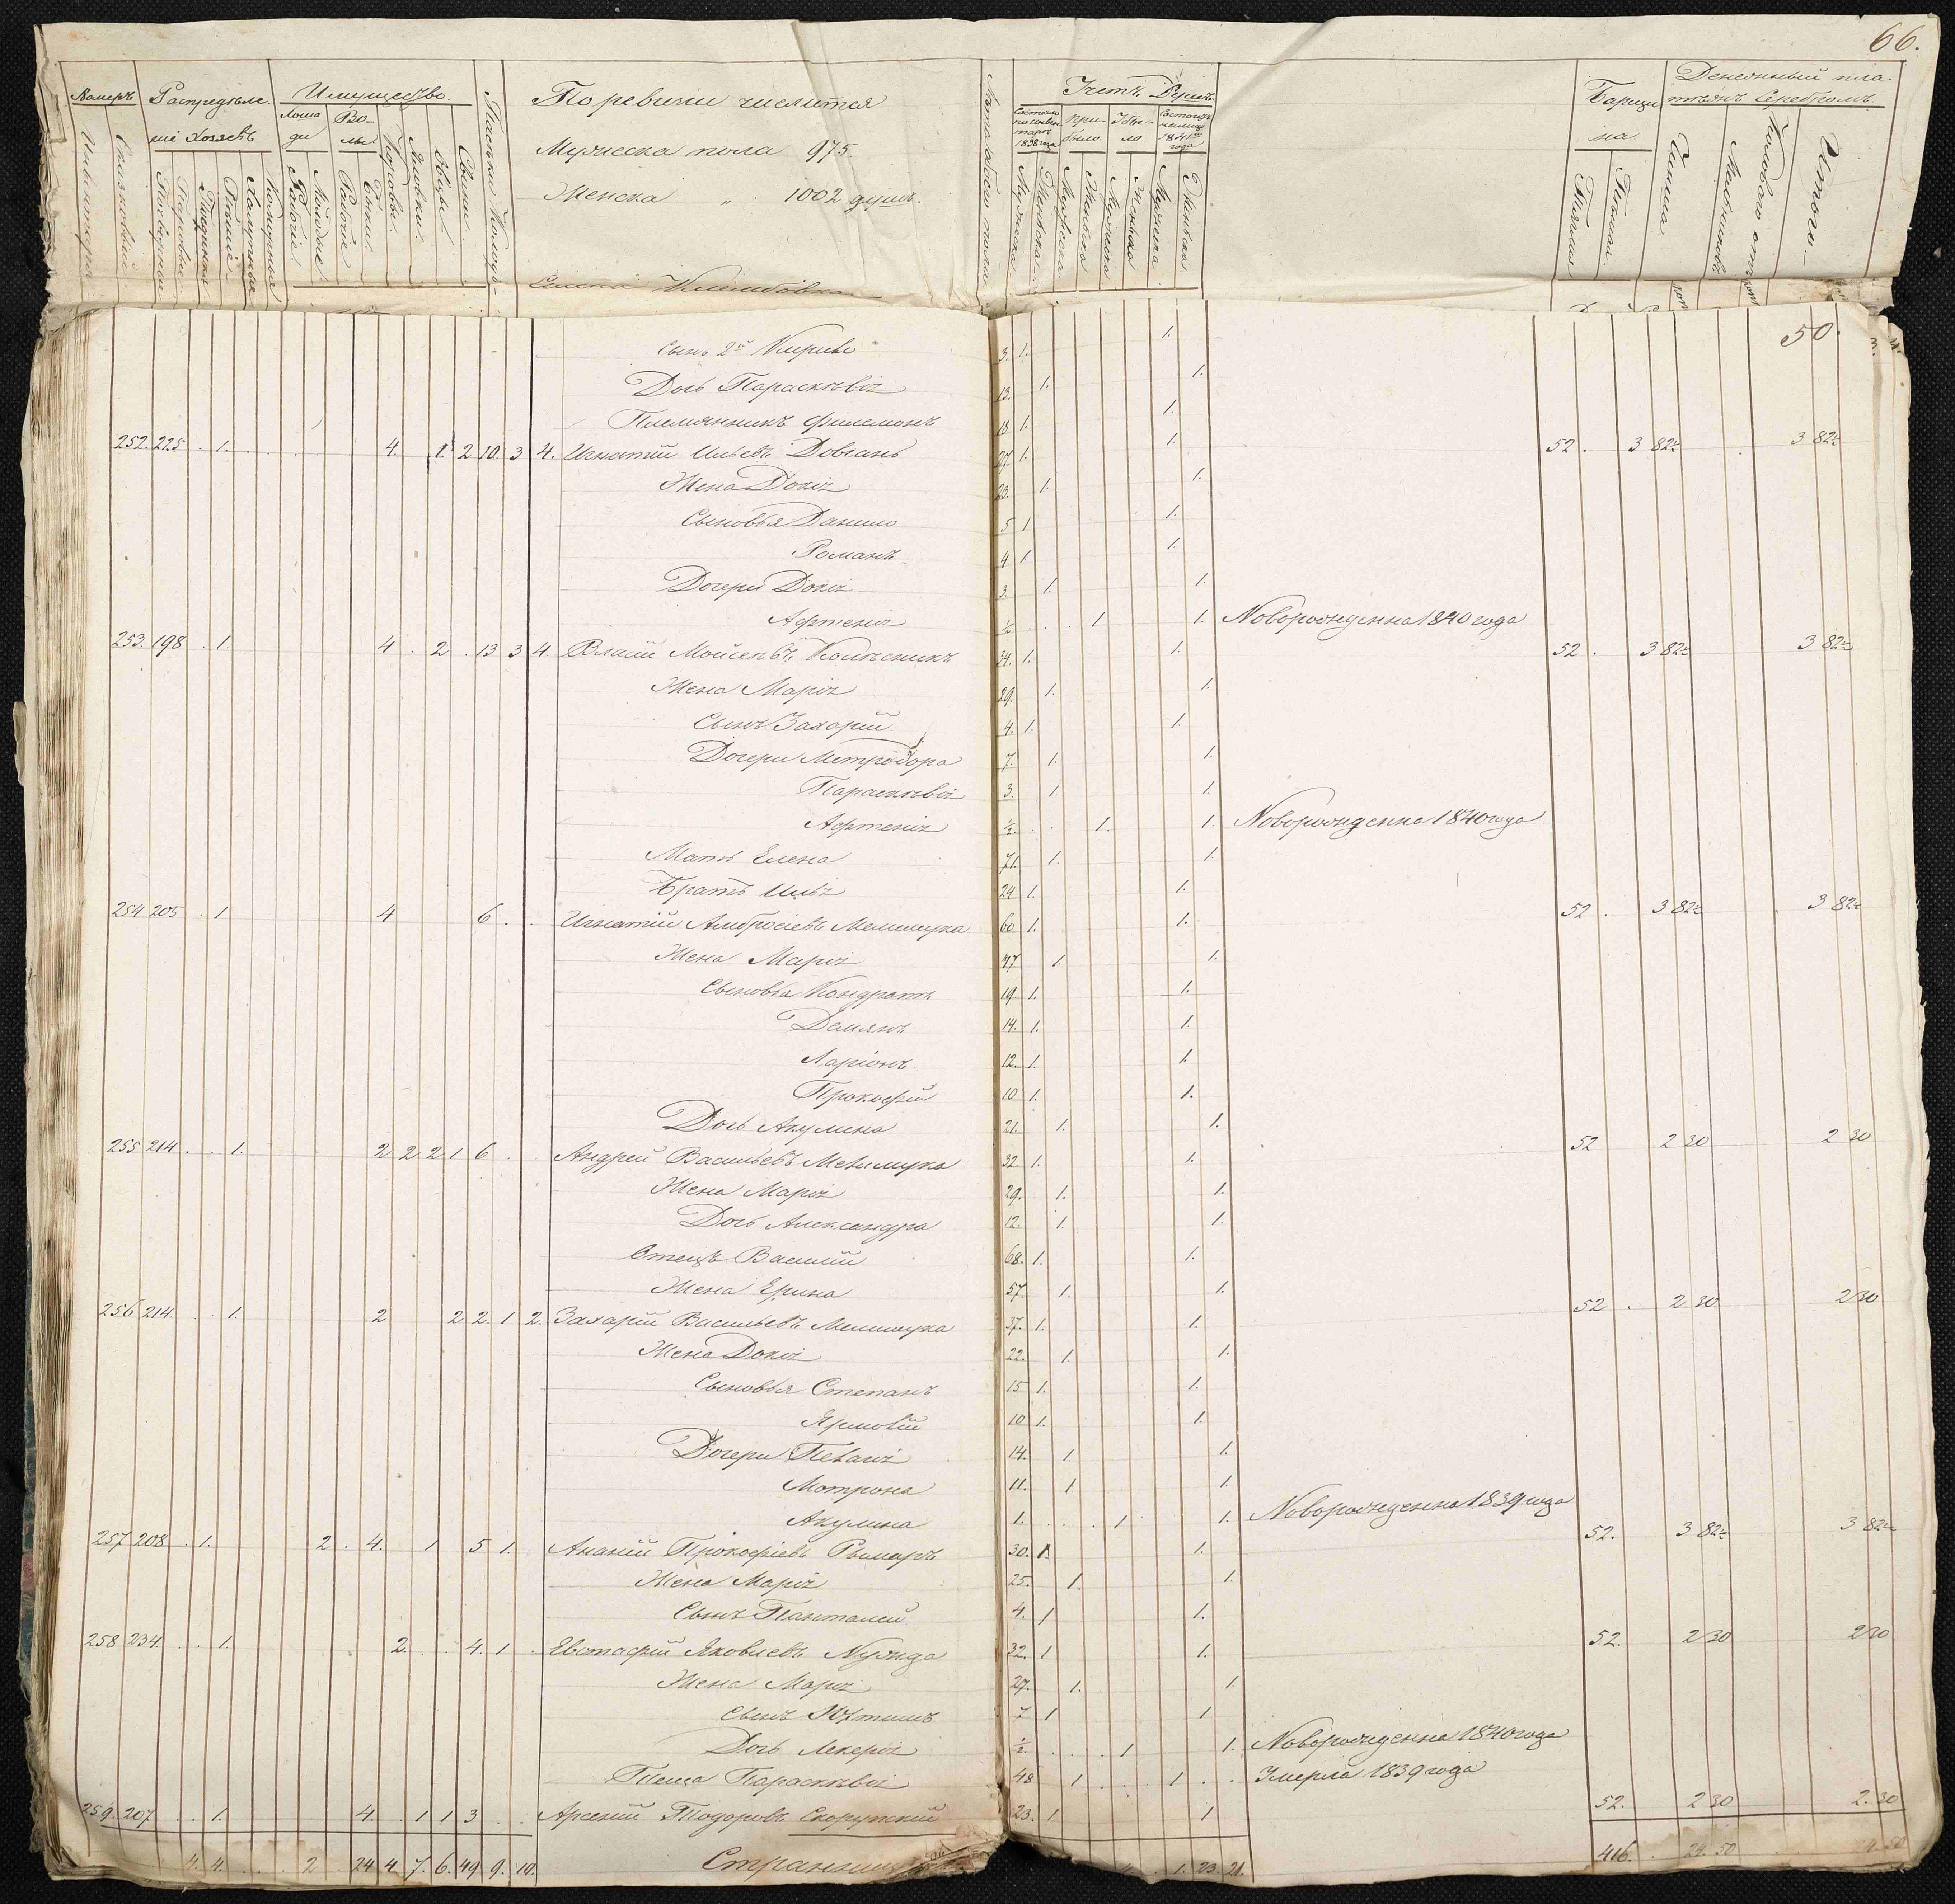 66.
Номеръ Распредѣле- Имущество. По ревизіи числится Учетъ Душъ Барщи- Денежный пла-
ніе Хозяевъ Лоша- Во- При- Убы- на тежъ Серебромъ.
ди лы было ло
Мужеска пола 975.
Женска " 1002 душъ.
Рабочіе Молодые Рабочіе Бычки Коровы Яловки Овцы Свиньи
Мужеска Женска Мужеска Женска Мужеска Женска Мужеска Женска
Чинша Итого
50.
Сынъ 2й Кирило 3. 1. 1.
Дочь Параскѣвія 13. 1. 1.
Племянникъ Филемонъ 1. 1.
252. 225 . 1. 4. 1. 2 10. 3 4. Игнатій Ильевъ Довгань 27 1. 1. 52 . 3 82½ 3 82½
Жена Докія 23. 1. 1.
Сыновья Данило 5 1 1.
Романъ 4. 1 1.
Дочери Докія 3 1. 1.
Афтенія ½ 1 1. Новорожденна 1840 года
253. 198 . 1. 4 . 2 . 13 3 4. Власій Мойсеевъ Колѣсникъ 34. 1. 1. 52 . 3 82½ 3 82½
Жена Марія 29. 1. 1.
Сынъ Захарій 4. 1. 1.
Дочери Метродора 7. 1. 1.
Параскѣвія 3. 1. 1.
Афтенія ½. 1. 1. Новорожденна 1840 года
Мать Елена 71. 1. 1.
Братъ Илья 24 1. 1.
254 205 . 1 4 6 . Игнатій Амбросіевъ Мелимука 60 1. 1. 52 . 3 82½ 3 82½
Жена Марія 47 1. 1.
Сыновья Кондратъ 19 1. 1.
Демянъ 14. 1. 1.
Ларіонъ 12. 1. 1.
Прокофій 10 1. 1.
Дочь Акулина 21. 1. 1.
255 214 . . 1. 2 2 2 1 6 . Андрей Васильевъ Мелимука 32. 1. 1. 52 2 30 2 30
Жена Марія 29. 1. 1.
Дочь Александра 12. 1. 1.
Отецъ Василій 68. 1. 1.
Жена Ерина 57. 1. 1.
256 214. . . 1. 2 2 2. 1 2. Захарій Васильевъ Мелимука 37. 1. 1. 52 . 2 30 2 30
Жена Докія 22. 1. 1.
Сыновья Степанъ 15 1. 1.
Ярмолій 10 1. 1.
Дочери Пелагія 14. 1. 1.
Мотрона 11. 1 1.
Акулина 1. 1 1. Новорожденна 1839 года
257 208 . 1. 2 . 4. 1 5 1. Ананій Прокофіевъ Рымаръ 30. 1. 1. 52. 3 82½ 3 82½
Жена Марія 25. 1. 1.
Сынъ Панталей 4. 1 1.
258 234. . . 1. 2. . . 4. 1 . Евстафій Яковлевъ Нужда 32. 1 1. 52. 2 30 2 30
Жена Марія 27. 1. 1.
Сынъ 7 1 1
Дочь Лекерія ½ 1 1. Новорожденна 1840 года
Теща Параскѣвія 48 1 1 Умерла 1839 года
259. 207 . . 1. 4. . 1 1 3 . . Арсеній Тодоровъ Скорупскій 23. 1 1 52. 2 30 2. 30
4. 4. 2 24 4 7. 6. 49 9. 10. 1. 23. 21. 416. 24. 50 24. 50